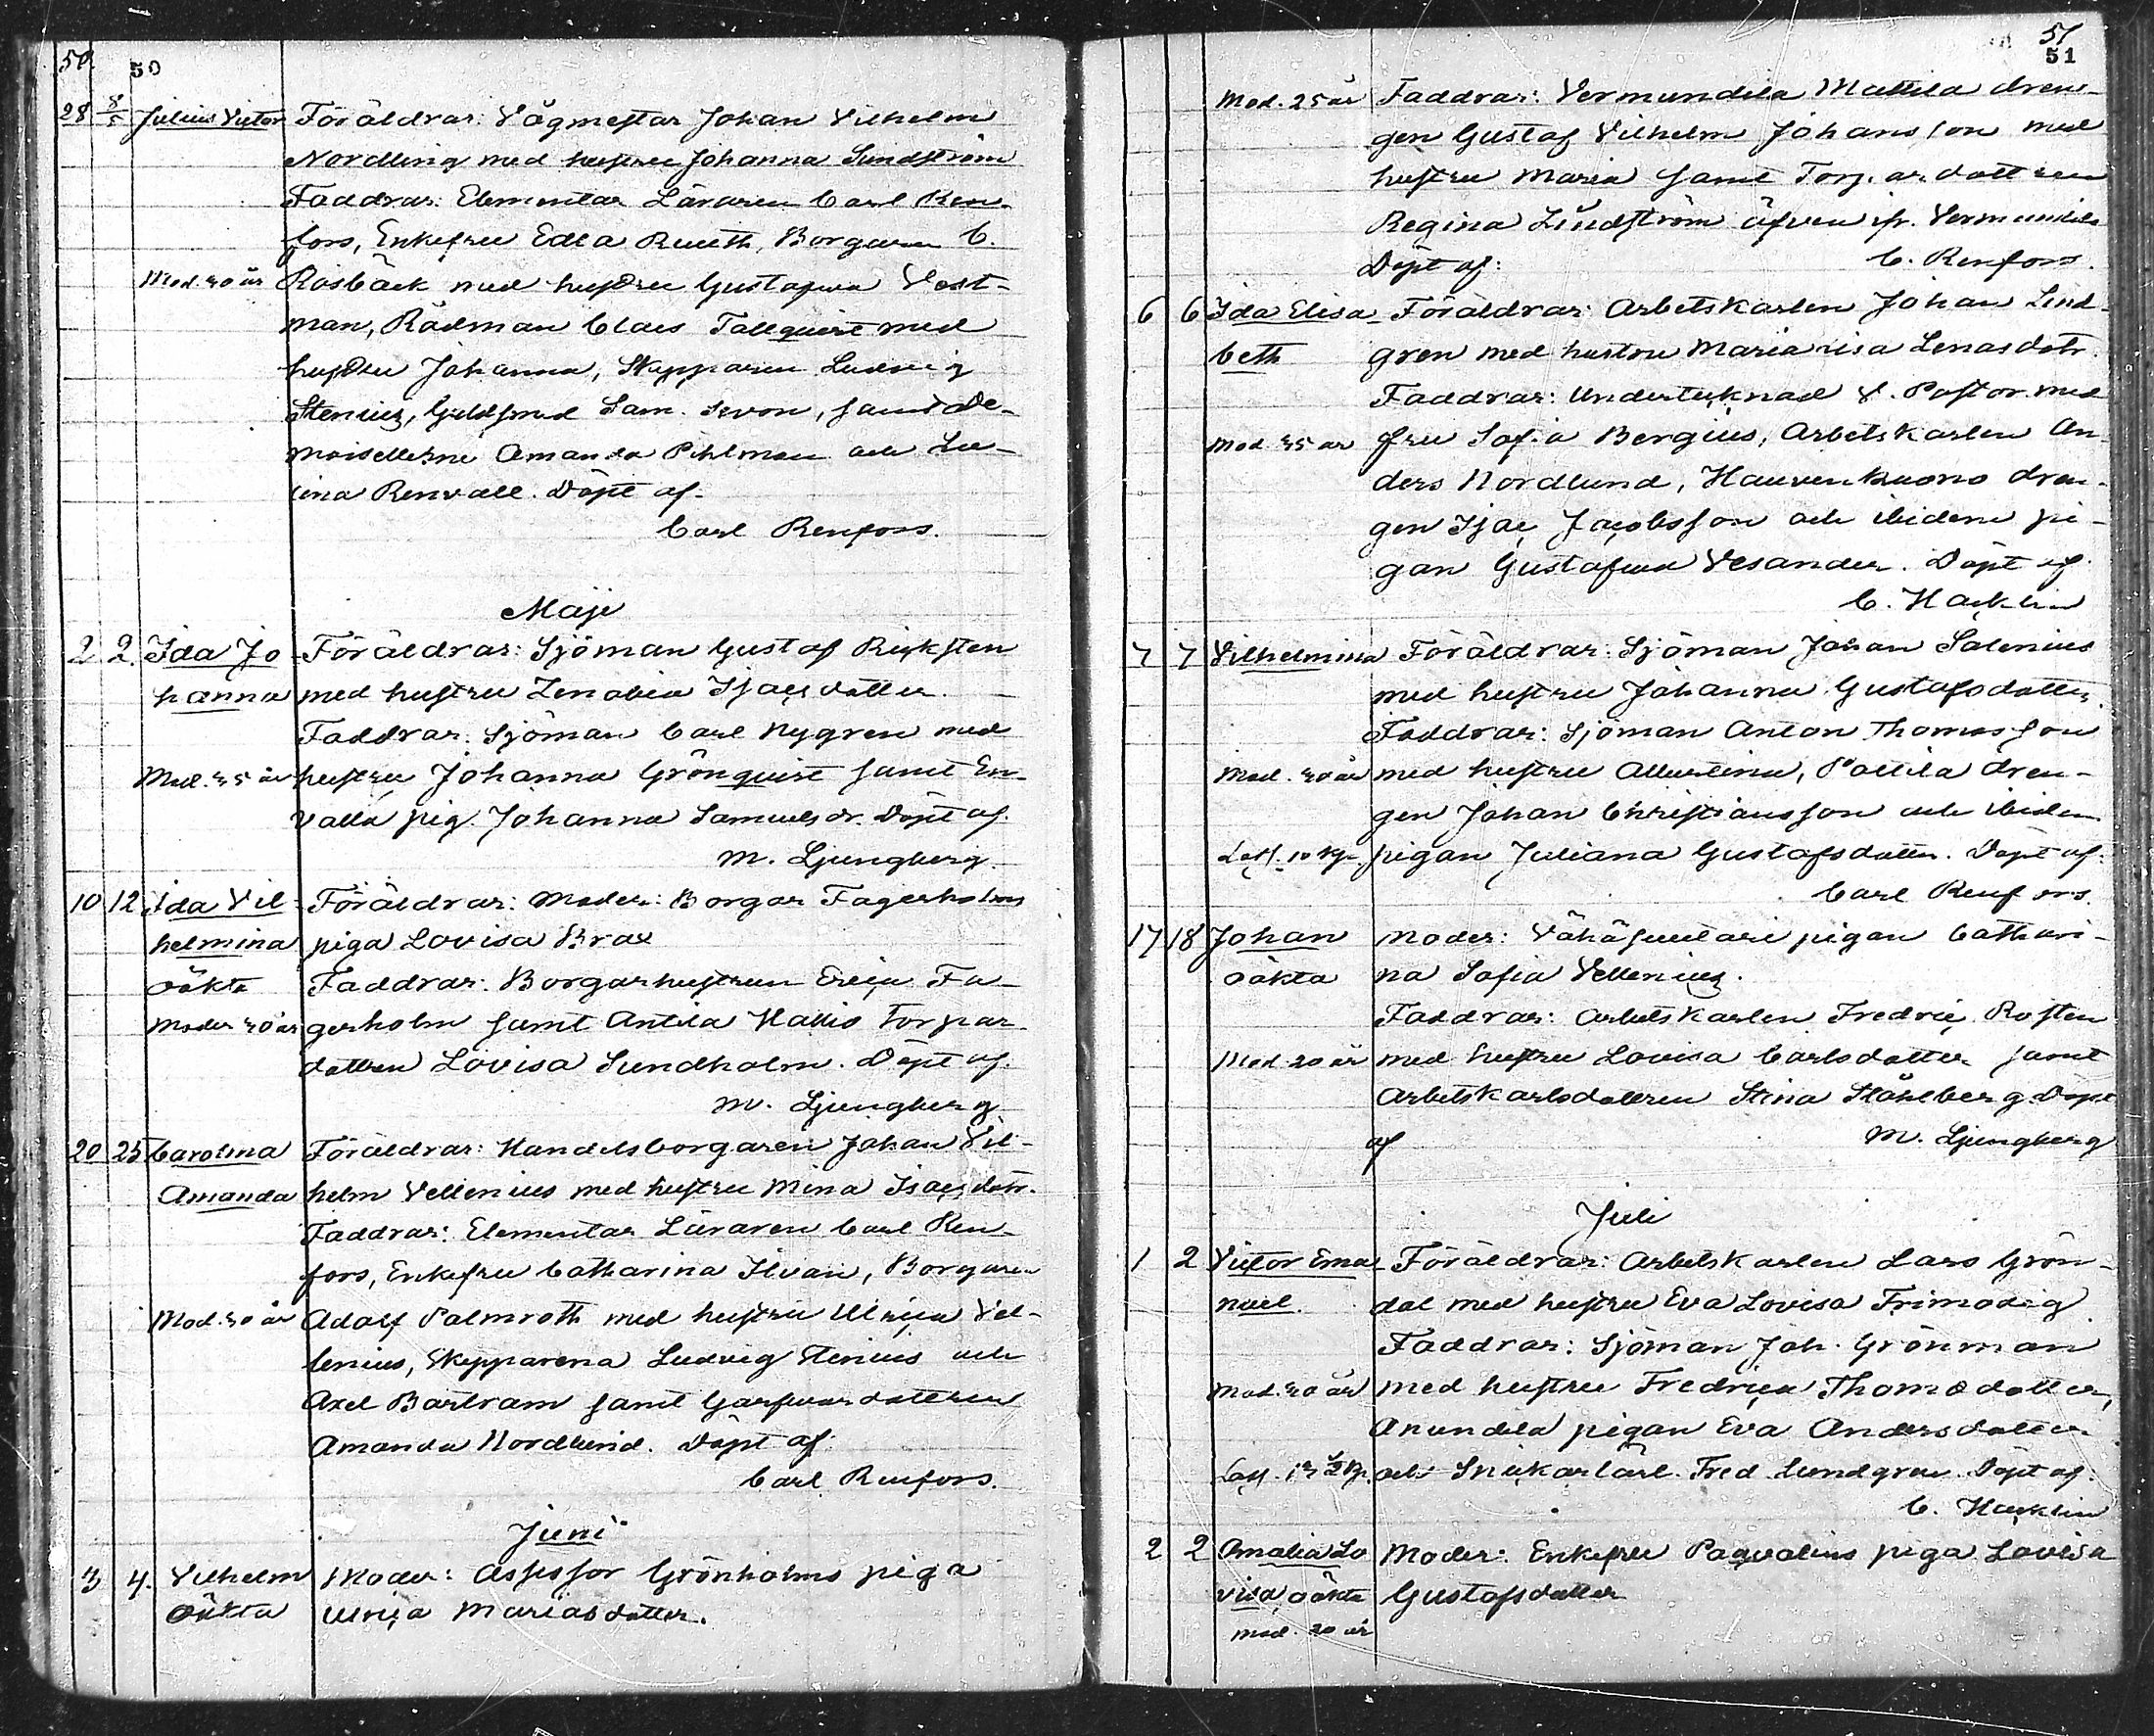 50. 50
28 8/5 Julius Victor Föräldrar: Vågmestar Johan Vilhelm
Nordling med hustru Johanna Sundström
Faddrar: Elementar Läraren Carl Ren-
fors, Enkefru Edla Rueth, Borgaren C.
Mod. 40 år Rosbäck med hustru Gustafva Vest-
man, Rådman Claes Tallquist med
hustru Johanna, Skepparen Ludvig
Stenius, Guldsmed Sam. Sevon, samt De-
moisellerne Amanda Pihlman och Lu-
cina Renvall. Döpt af
Carl Renfors.
Maji
2 2. Ida Jo- Föräldrar: Sjöman Gustaf Ricksten
hanna med hustru Zenobia Isacsdotter.
Faddrar: Sjöman Carl Nygren med
Mod. 35 år hustru Johanna Grönquist samt En-
valla pig. Johanna Samuelsdr. Döpt af
M. Ljungberg.
10 12 Ida Vil- Föräldrar: Moder: Borgar Fagerholms
helmina piga Lovisa Brax
oäkta Faddrar: Borgarhustrun Erica Fa-
Moder 40 år gerholm samt Antila Hallis Torpar-
dottren Lovisa Sundholm. Döpt af.
M. Ljungberg
20 25 Carolina Föräldrar: Handelsborgaren Johan Vil-
Amanda helm Vellenius med hustru Mina Isacsdotr.
Faddrar: Elementar Läraren Carl Ren-
fors, Enkefru Catharina Ilvan, Borgaren
Mod. 30 år Adolf Palmroth med hustru Ulrica Vel-
lenius, Skepparena Ludvig Stenius och
Axel Bartram samt Garfvardottren
Amanda Nordlund. Döpt af
Carl Renfors.
Juni
3 4. Vilhelm Moder: Assessor Grönholms piga
Oäkta Ulrica Mariasdotter.
51 51
Mod. 25 år Faddrar: Vermundila Mattila dren-
gen Gustaf Vilhelm Johansson med
hustru Maria samt Torpardottren
Regina Lindström äfven ifr. Vermundila
Döpt af: C. Renfors.
6 6 Ida Elisa- Föräldrar: Arbetskarlen Johan Lind-
beth gren med hustru Maria Lisa Lenasdotr.
Faddrar: Undertecknad V. Pastor med
Mod. 35 år fru Sofia Bergius, Arbetskarlen An-
ders Nordlund, Hauvenkuono dren-
gen Isac Jacobsson och ibidem pi-
gan Gustafva Vesander. Döpt af
C. Hacklin
7 7 Vilhelmina Föräldrar: Sjöman Johan Salenius
med hustru Johanna Gustafsdotter,
Faddrar: Sjöman Anton Thomasson
Mod. 40 år med hustru Albertina, Pattila dren-
gen Johan Christiansson och ibidem
Lass. 10 kp. pigan Juliana Gustafsdotter. Döpt af:
Carl Renfors.
17 18 Johan Moder: Vähäsuutari pigan Cathari-
oäkta na Sofia Vellenius.
Faddrar: Arbetskarlen Fredric Rosten
Mod 20 år med hustru Lovisa Carlsdotter samt
Arbetskarlsdottren Stina Ståhlberg. Döpt
af M. Ljungberg
Juli
1 2 Victor Ema- Föräldrar: Arbetskarlen Lars Grön-
nuel. dal med hustru Eva Lovisa Frimodig
Faddrar: Sjöman Joh. Grönman
Mod. 40 år med hustru Fredrica Thomædotter,
Anundila pigan Eva Andersdotter
Lass. kp. och Snickarlärl. Fred Lundgren. Döpt af.
C. Hacklin
2 2 Amalia Lo- Moder: Enkefru Paqvalins piga Lovisa
visa, oäkta Gustafsdotter
Mod. 20 år